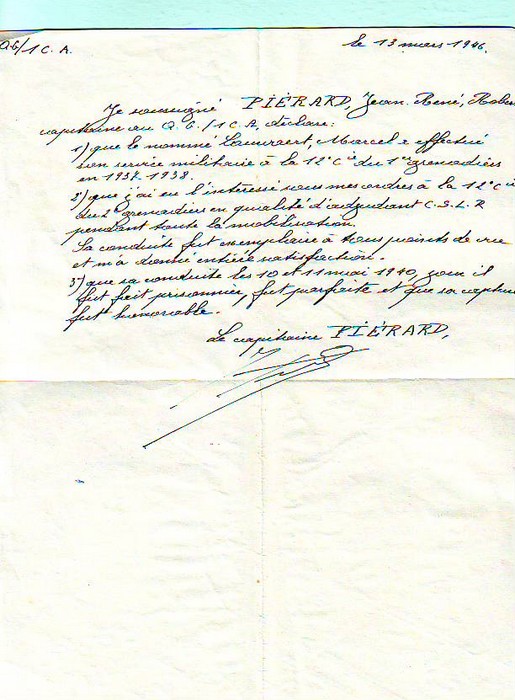 Q.G/1 C.A.
le 13 mars 1946.
Je soussigné PIÉRARD, Jean René, Rober
capitaine au Q.G./1 C.A, déclare:
1) que le nommé Lauwaert, Marcel a effectué
son service militaire à la 12e Cie du 1er grenadiers
en 1937-1938.
2) que j'ai eu l'intéressé sous mes ordres à la 12e Cie
du 2e grenadiers en qualité d'adjudant C.S.L.R
pendant toute la mobilisation.
Sa conduite fut exemplaire à tous points de vue
et m'a donné entière satisfaction.
3) que sa conduite les 10 et 11 mai 1940, jour il
fut fait prisonnier, fut parfaite et que sa capture
fut honorable.
Le capitaine PIÉRARD,